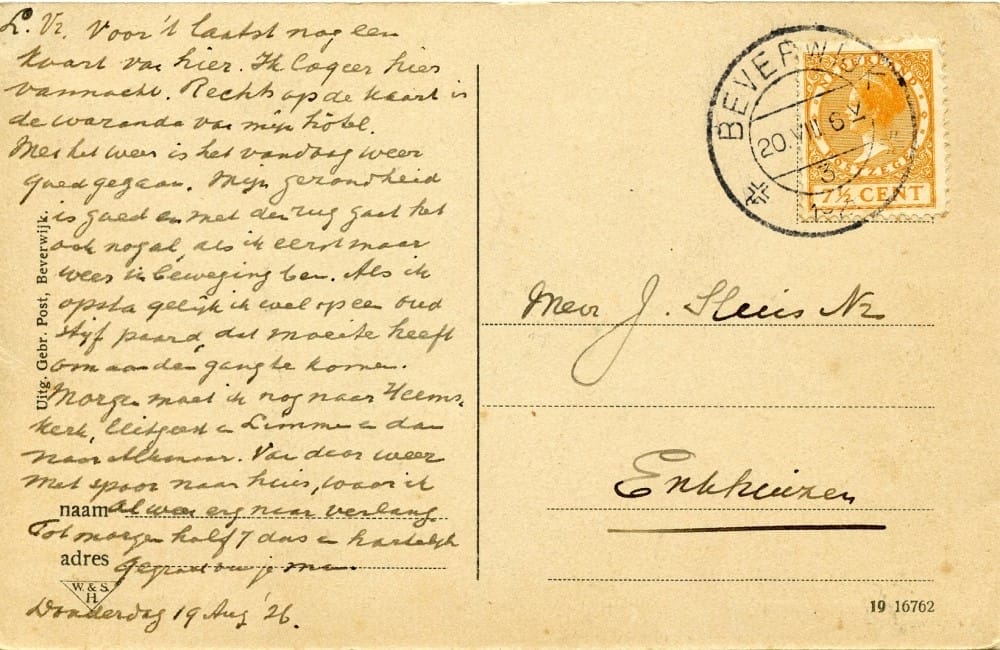 L. Vr. Voor 't laatst nog een
kaart van hier. Ik logeer hier
vannacht. Rechts op de kaart is
de waranda van mijn hôtel.
Met het weer is het vandaag weer
goed gegaan. Mijn gezondheid
is goed en met de rug gaat het
ook nogal, als ik eerst maar
weer in beweging ben. Als ik
opsta gelijk ik wel op een oud
stijf paard, dat moeite heeft
om aan den gang te komen.
Morgen moet ik nog naar Heems-
kerk, Uitgeest en Limmen en dan
naar Alkmaar. Van daar weer
met spoor naar huis, waar ik
al weer erg naar verlang.
Tot morgen half 7 dus en hartelijk
gegroet van je man.
Donderdag 19 Aug '26.
naam
adres
W. & S.
H.
Uitg. Gebr. Post, Beverwijk.
BEVERWIJK
20.VIII 6 V
3
7½ CENT
Mevr J. Sluis Nz
Enkhuizen
19 16762